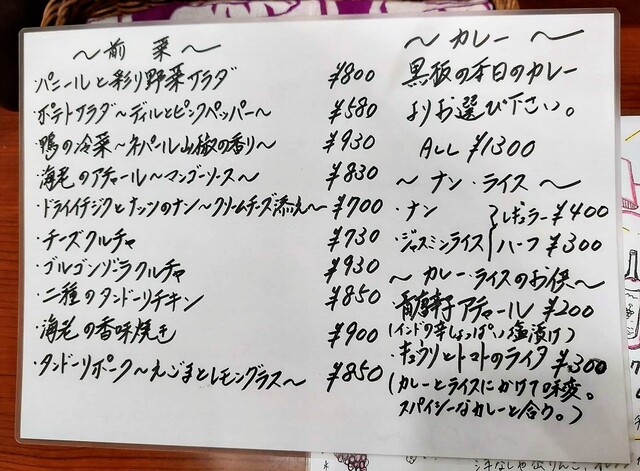 ～前菜～
・パニールと彩り野菜サラダ ¥800
ポテトサラダ～ディルとピンクペッパー～ ¥580
・鴨の冷菜～ネパール山椒の香り～ ¥930
・海老のアチャール～マンゴーソース～ ¥830
・ドライイチジクとナッツのナン～クリームチーズ添え～ ¥700
・チーズクルチャ ¥730
・ゴルゴンゾラクルチャ ¥930
・二種のタンドーリチキン ¥850
・海老の香味焼き ¥900
・タンドーリポーク～えごまとレモングラス～ ¥850
～カレー～
黒板の本日のカレー
よりお選び下さい。
ALL ¥1300
～ナン・ライス～
・ナン レギュラー ¥400
・ジャスミンライス ハーフ ¥300
～カレー・ライスのお供～
アチャール ¥200
(インドの辛しょっぱい塩漬け)
・キュウリとトマトのライタ ¥300
(カレーとライスにかけて味変。
スパイシーなカレーと合う。)